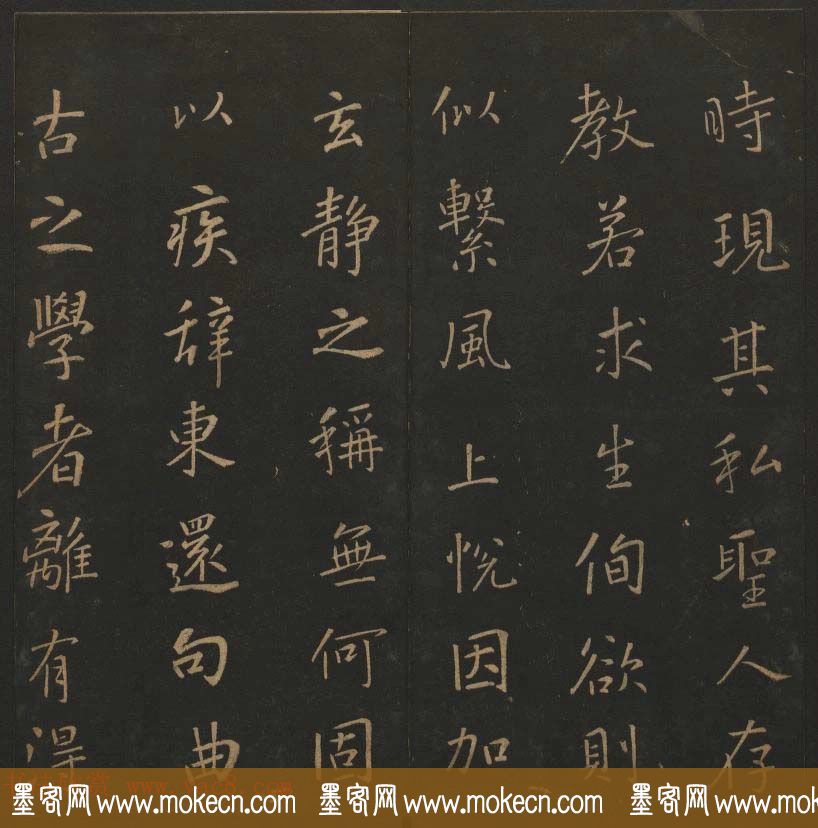 時現其私聖人存
教若求生徇欲則
似繫風上悅因加
玄靜之稱無何固
以疾辭東還句曲
古之學者離有得
墨客网 www.mokecn.com 墨客网 www.mokecn.com 墨客网 www.mokecn.com